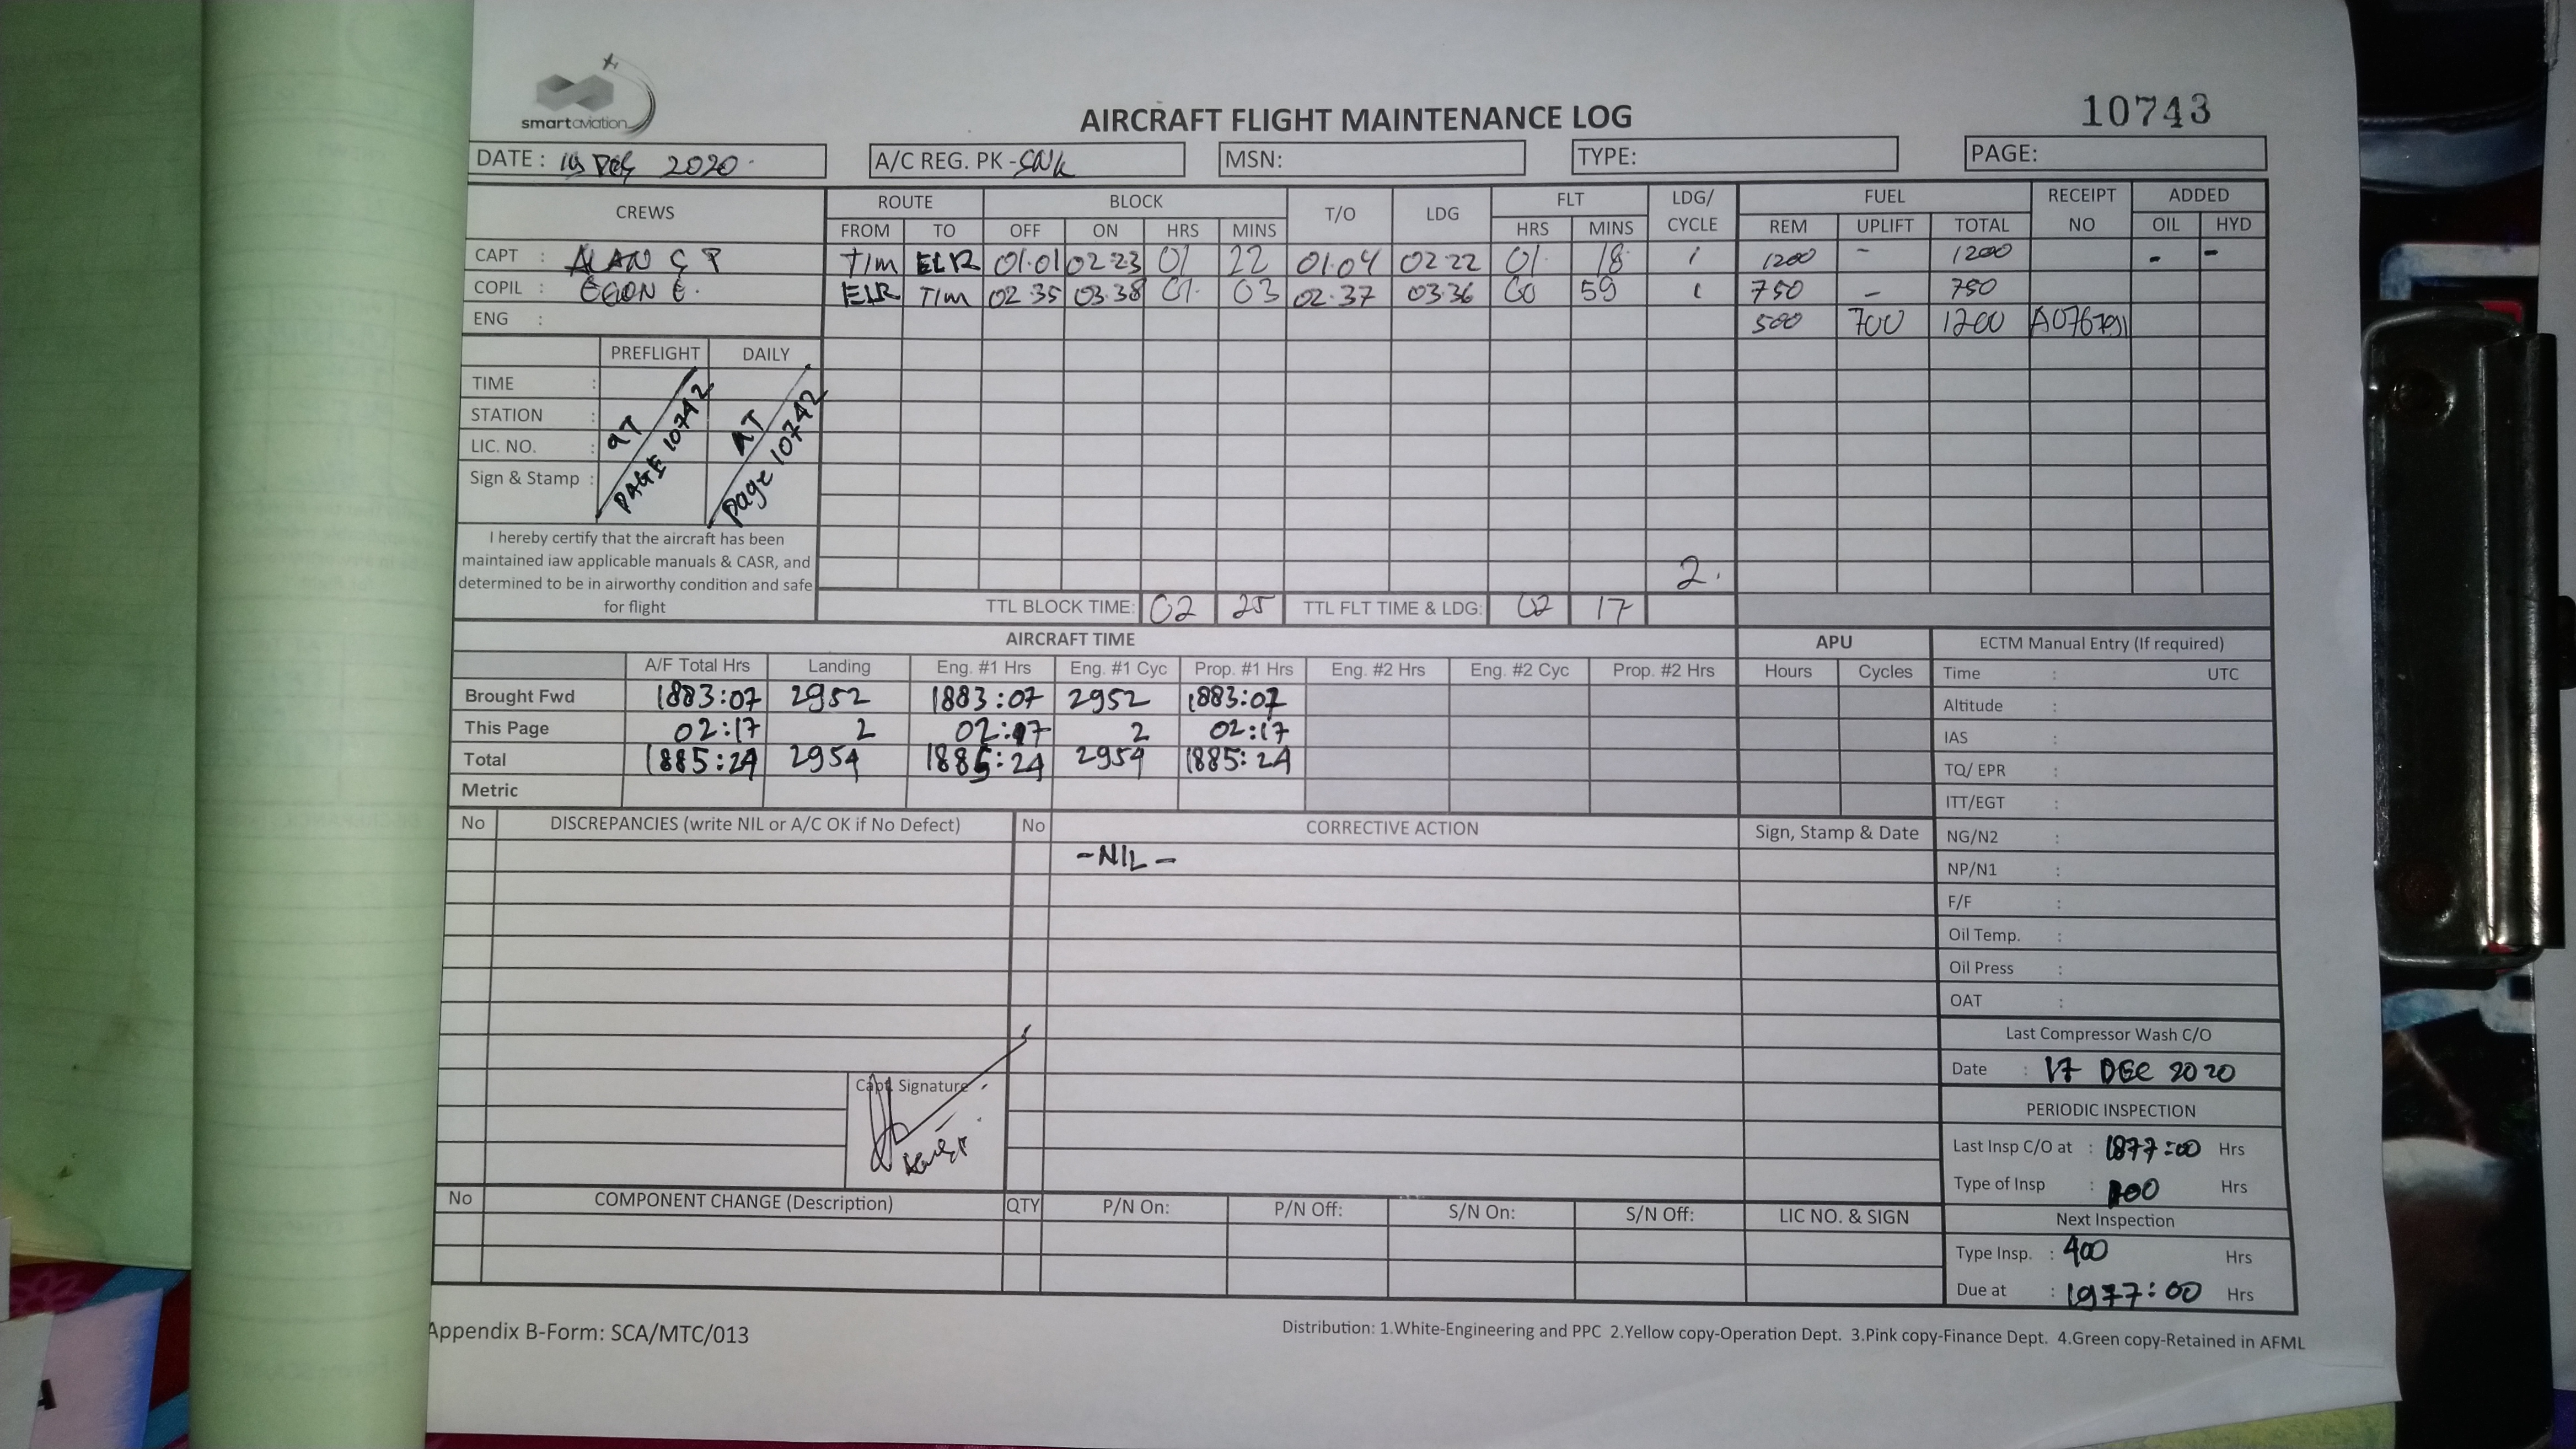 smartaviation
AIRCRAFT FLIGHT MAINTENANCE LOG
10743
DATE : 2020
A/C REG. PK - SNK
MSN:
TYPE:
PAGE:
CREWS ROUTE BLOCK T/O LDG FLT LDG/ CYCLE FUEL RECEIPT NO ADDED
FROM TO OFF ON HRS MINS HRS MINS REM UPLIFT TOTAL OIL HYD
CAPT : ALAN TIM ELR 01.01 02.23 01 22 01.04 02.22 01. 18 1 1200 - 1200 - -
COPIL : EGON E. ELR TIM 02 35 03.38 01. 03 02.37 03.36 00 59 1 750 - 750
ENG : 500 700 1200
PREFLIGHT DAILY
TIME :
STATION :
LIC. NO. :
Sign & Stamp :
AT PAGE 10742
AT page 10742
I hereby certify that the aircraft has been
maintained iaw applicable manuals & CASR, and
determined to be in airworthy condition and safe
for flight
2.
TTL BLOCK TIME: 02 25 TTL FLT TIME & LDG: 02 17
AIRCRAFT TIME APU ECTM Manual Entry (If required)
A/F Total Hrs Landing Eng. #1 Hrs Eng. #1 Cyc Prop. #1 Hrs Eng. #2 Hrs Eng. #2 Cyc Prop. #2 Hrs Hours Cycles Time : UTC
Brought Fwd 1883:07 2952 1883:07 2952 1883:07
Altitude :
This Page 02:17 2 02:17 2 02:17
IAS :
Total 1885:24 2954 1885:24 2954 1885:24
TQ/ EPR :
Metric
ITT/EGT :
No DISCREPANCIES (write NIL or A/C OK if No Defect) No CORRECTIVE ACTION Sign, Stamp & Date
NG/N2 :
-NIL-
NP/N1 :
F/F :
Oil Temp. :
Oil Press :
OAT :
Last Compressor Wash C/O
Date : 17 DEC 2020
Capt. Signature
PERIODIC INSPECTION
Last Insp C/O at : 1877:00 Hrs
Type of Insp : Hrs
No COMPONENT CHANGE (Description) QTY P/N On: P/N Off: S/N On: S/N Off: LIC NO. & SIGN
Next Inspection
Type Insp. : 400 Hrs
Due at : 1977:00 Hrs
Appendix B-Form: SCA/MTC/013
Distribution: 1.White-Engineering and PPC 2.Yellow copy-Operation Dept. 3.Pink copy-Finance Dept. 4.Green copy-Retained in AFML